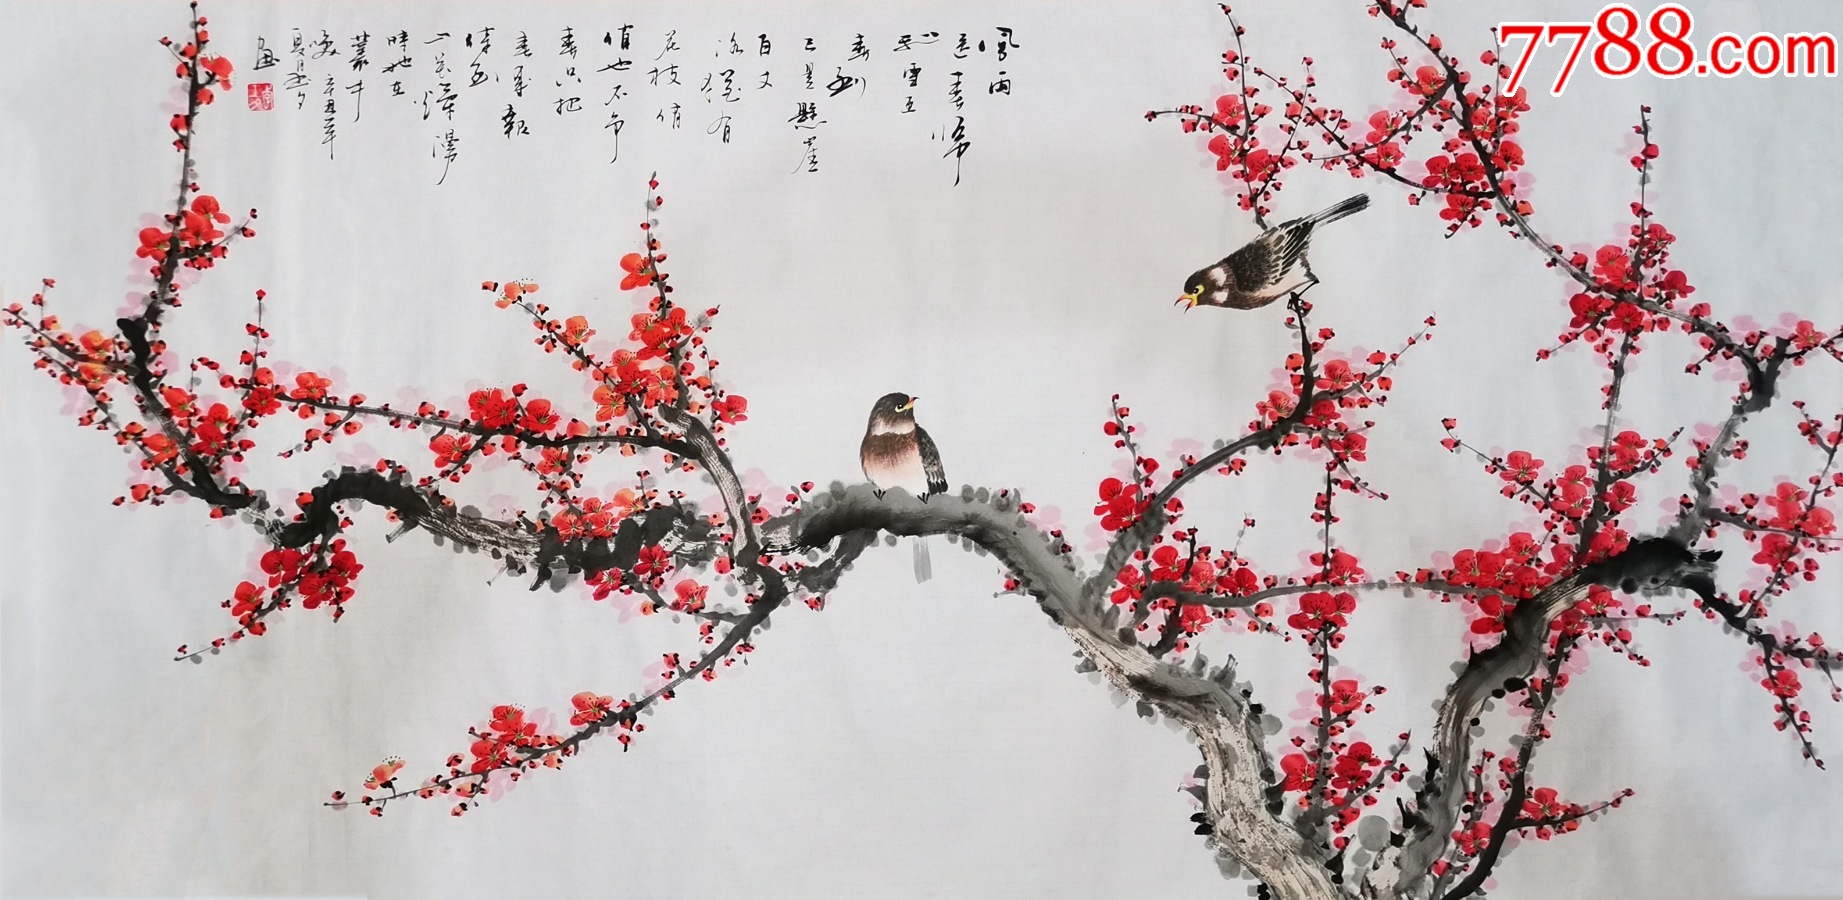 7788.com
風雨
送春歸
飛雪迎
春到
已是懸崖
百丈
冰猶有
花枝俏
俏也不争
春只把
春來報
待到
山花爛漫
時她在
叢中
笑 辛丑年
夏月
画